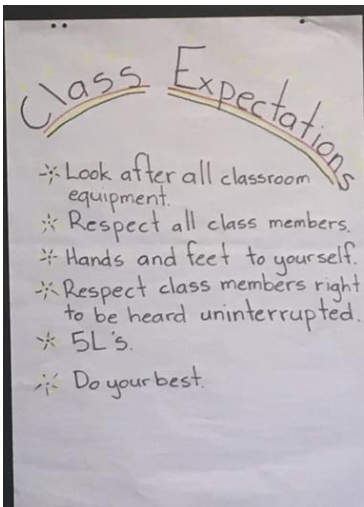 Class Expectations
Look after all classroom
equipment.
Respect all class members.
Hands and feet to yourself.
Respect class members right
to be heard uninterrupted.
5L's.
Do your best.